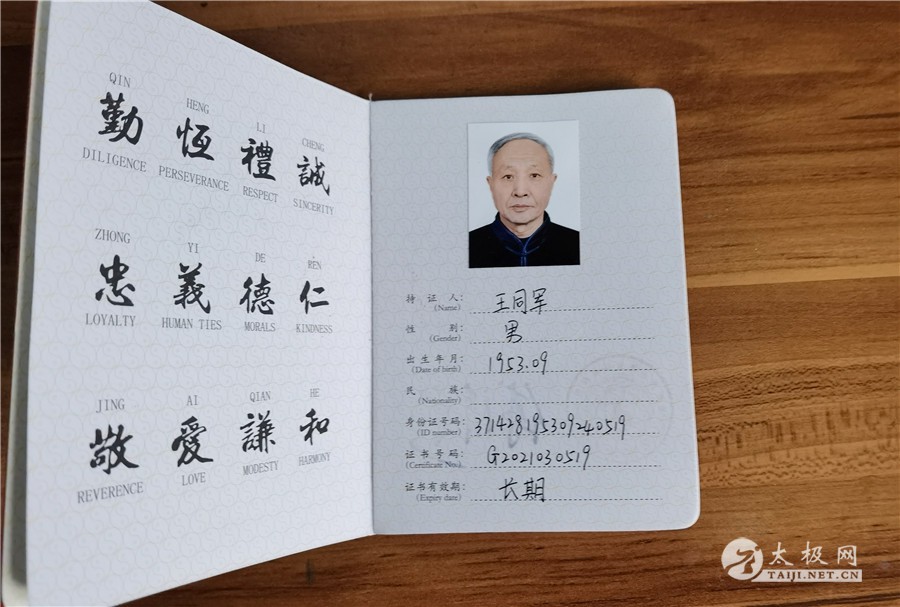 QIN HENG LI CHENG
勤 恆 禮 誠
DILIGENCE PERSEVERANCE RESPECT SINCERITY
ZHONG YI DE REN
忠 義 德 仁
LOYALTY HUMAN TIES MORALS KINDNESS
JING AI QIAN HE
敬 愛 謙 和
REVERENCE LOVE MODESTY HARMONY
持证人: 王同军
(Name)
性别: 男
(Gender)
出生年月: 1953.09
(Date of birth)
民族:
(Nationality)
身份证号码: 371428195309240519
(ID number)
证书号码: G2021030519
(Certificate No.)
证书有效期: 长期
(Expiry date)
太极网
TAIJI.NET.CN